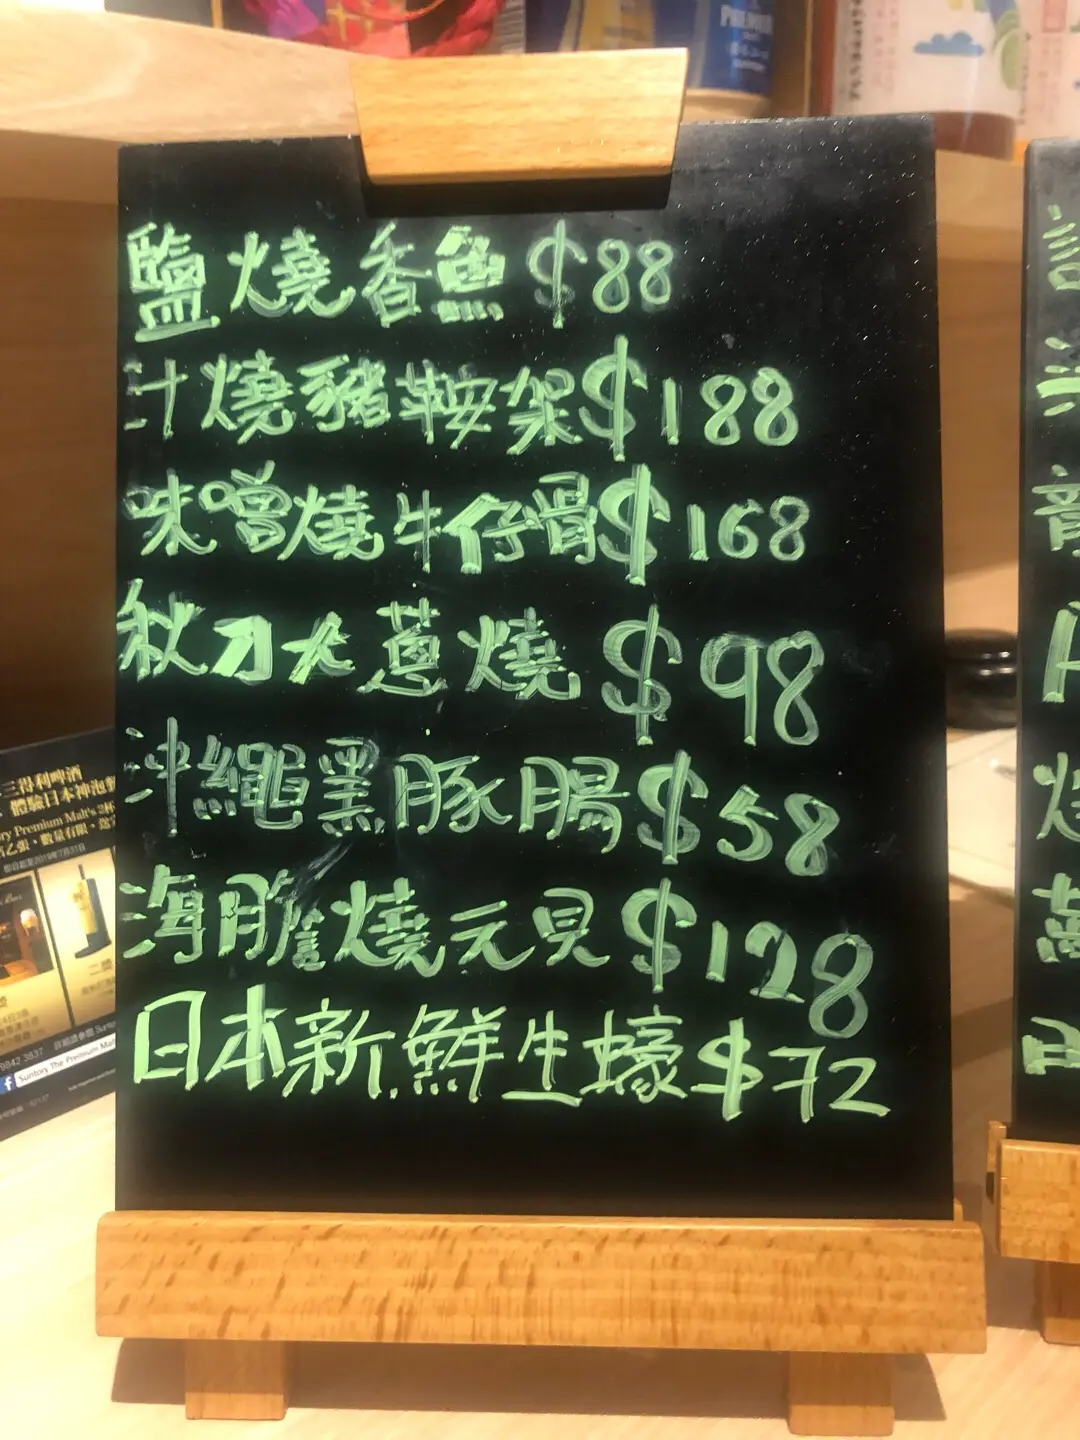 鹽燒香魚 $88
汁燒豬鞍架 $188
味噌燒牛仔骨 $168
秋刀大蔥燒 $98
沖繩黑豚腸 $58
海膽燒元貝 $128
日本新鮮生蠔 $72
PREMIUM
三得利啤酒
體驗日本神泡
ry Premium Malt's 2杯
Suntory The Premium Malt